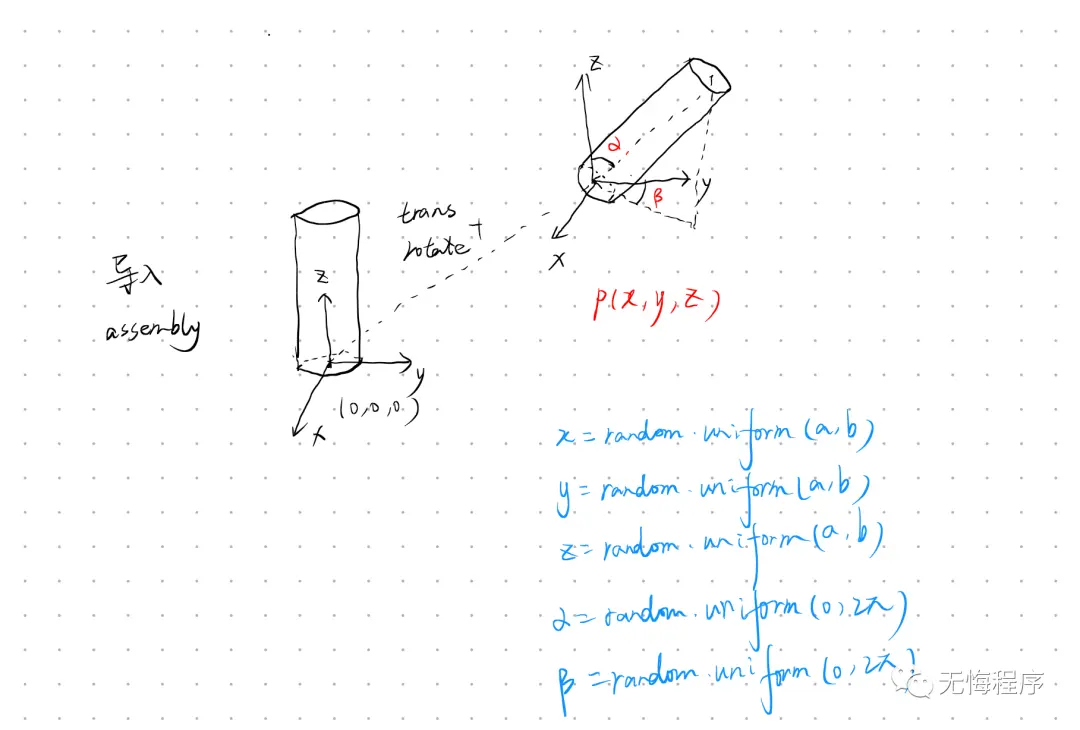 导入
assembly
z
y
x
(0,0,0)
trans +
rotate
z
α
y
β
x
P(x,y,z)
x=random.uniform(a,b)
y=random.uniform(a,b)
z=random.uniform(a,b)
α=random.uniform(0,2π)
β=random.uniform(0,2π)
无悔程序